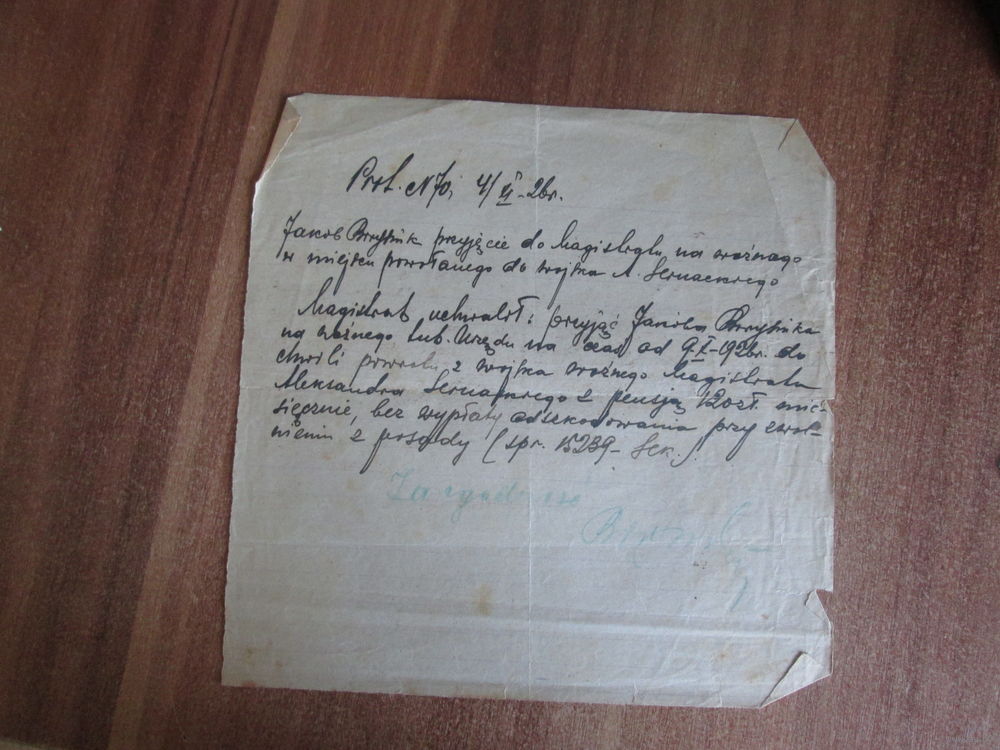 Prot. N 70, 4/XI-26r.
Jakób przyjęcie do Magistratu na woźnego
w miejscu powołanego do wojska A. Sernackiego
Magistrat uchwalił: przyjąć Jakóba
na woźnego tut. Urzędu na czas od 9.X-1926r. do
chwili powrotu z wojska woźnego Magistratu
Aleksandra Sernackiego z pensją 120 zł. mie-
sięcznie, bez wypłaty odszkodowania przy zwol-
nieniu z posady (spr. 15239 - Sek.)
Za zgodność